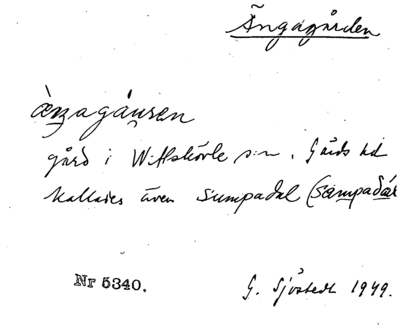 Ängagården
ængagáuren
gård i W. Vittskövle s:n. Gärds hd
kallades även Sumpadal (
Nr 5340.
G. Sjöstedt 1949.